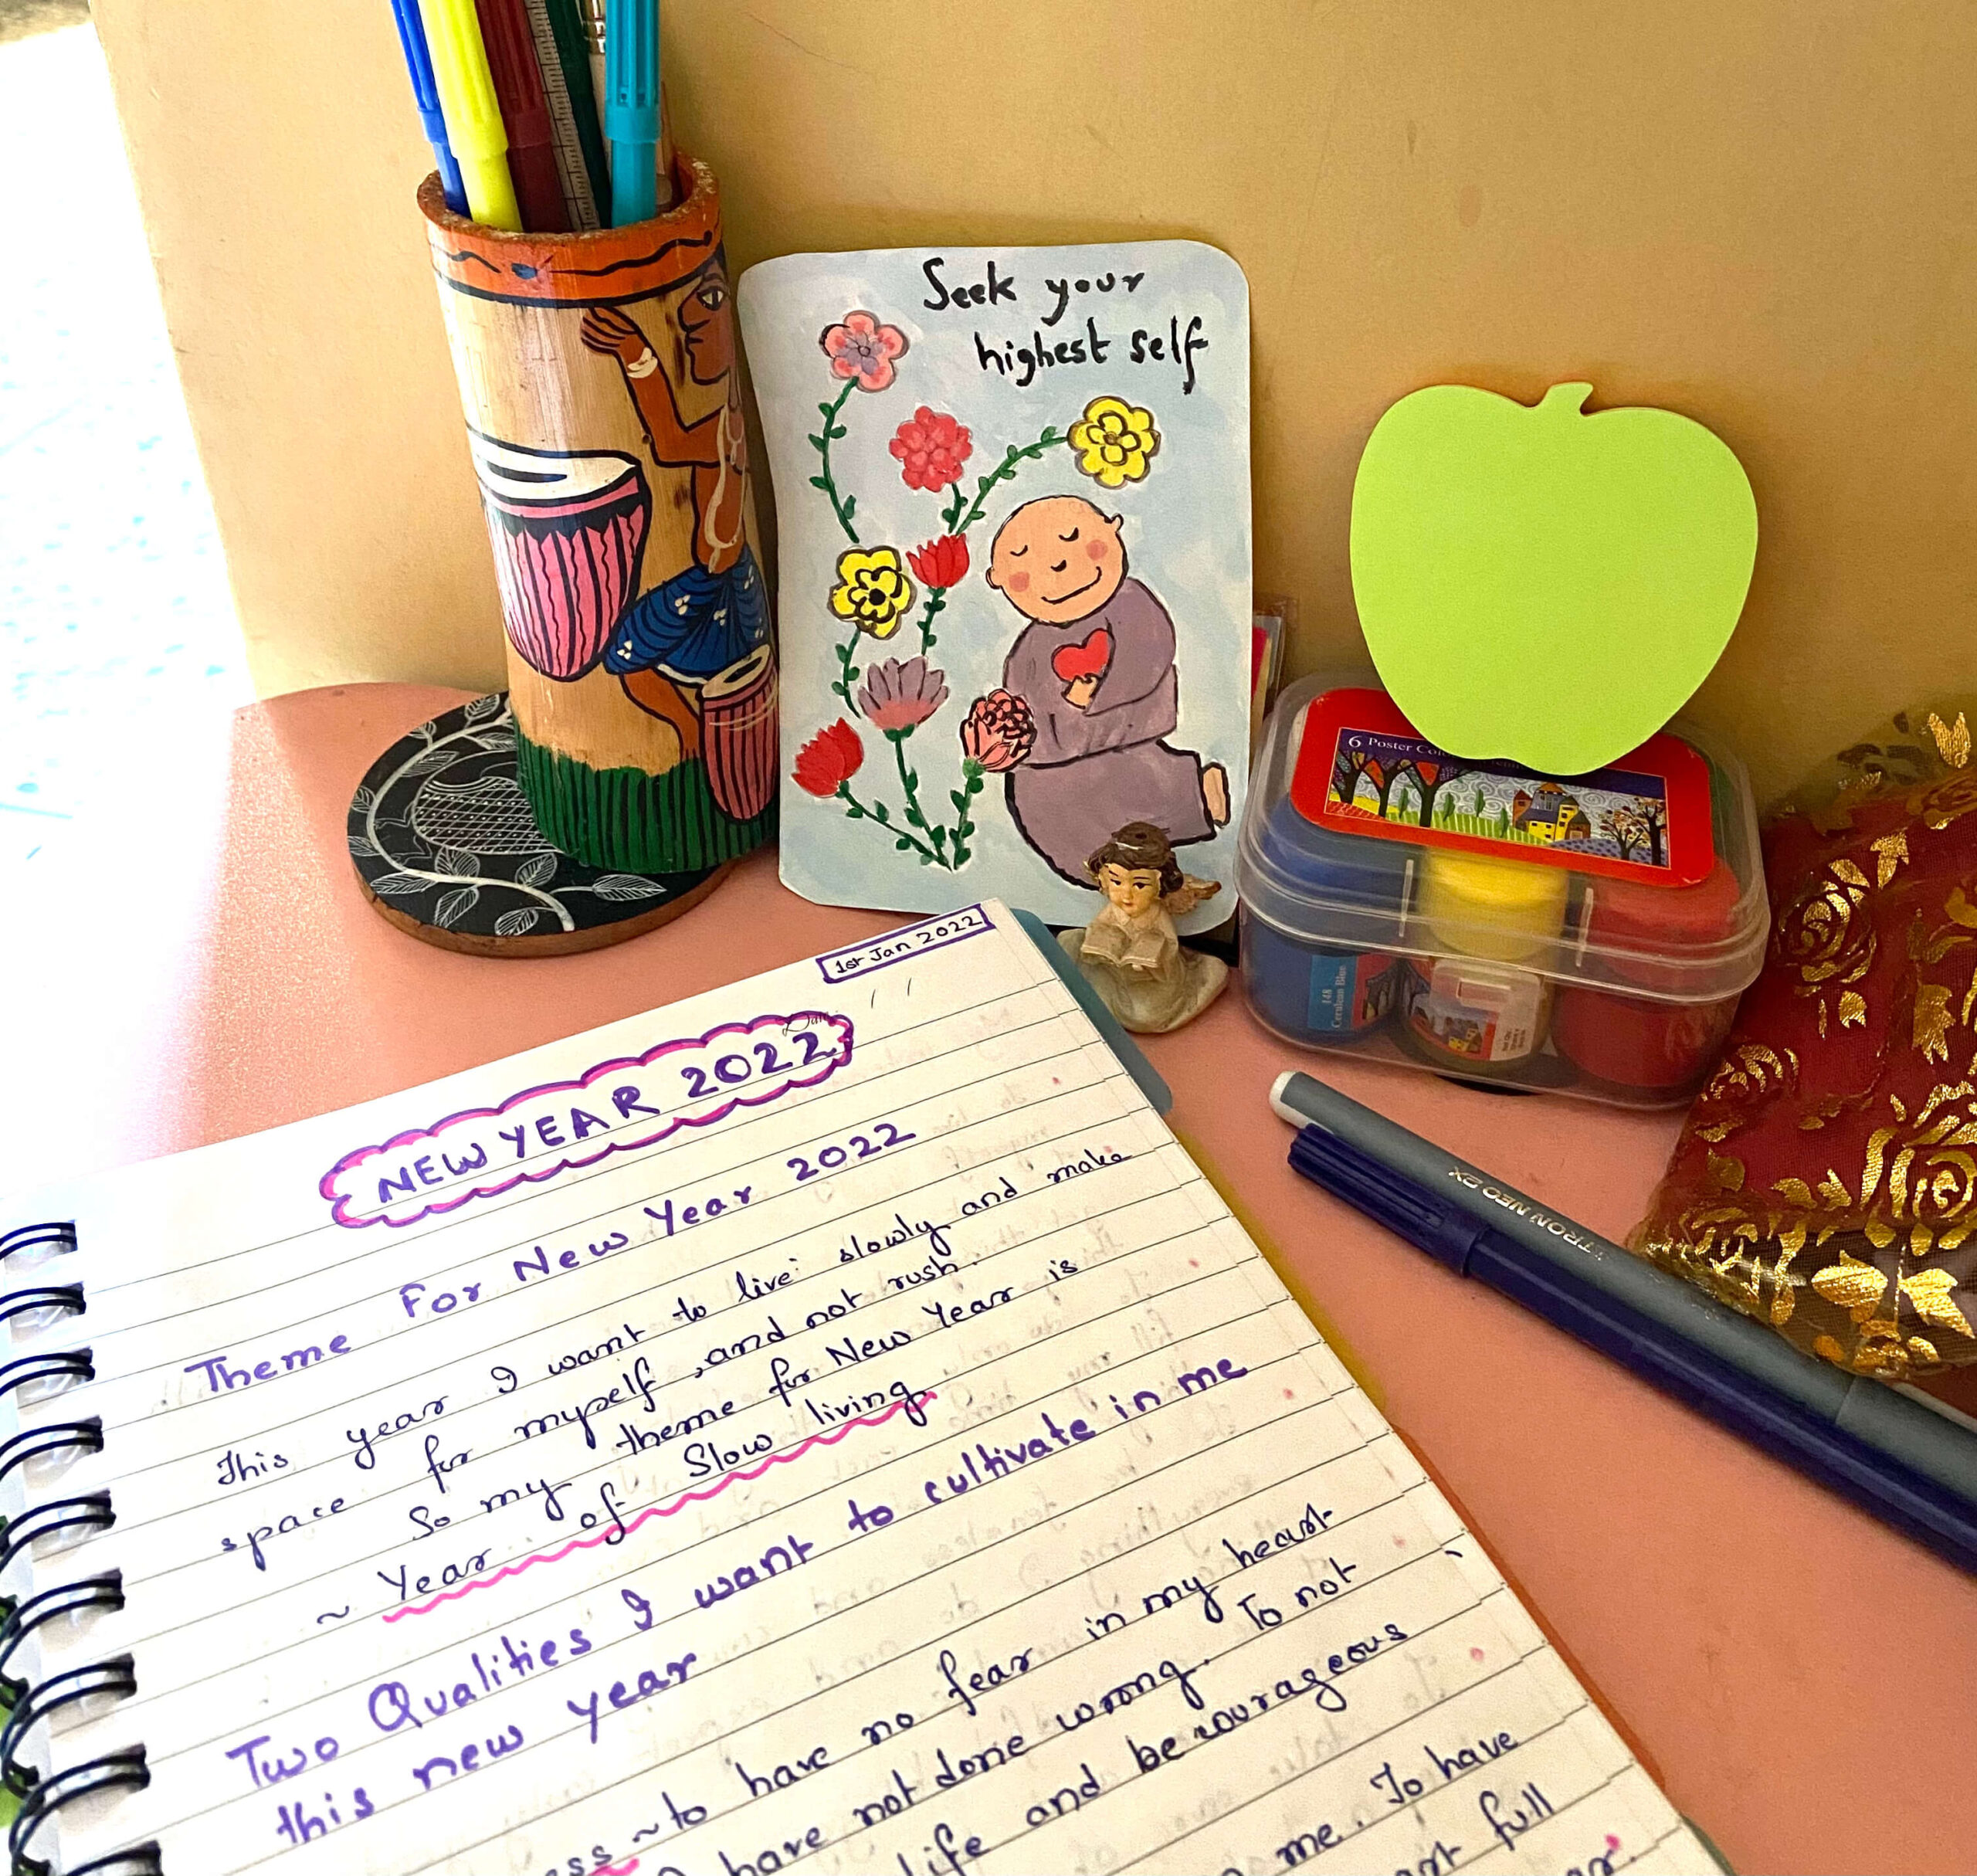 Seek your
highest self
6 Poster
148
Cerulean Blue
TRON NEO EX
1st Jan 2022
Date
NEW YEAR 2022
Theme For New Year 2022
This year I want to live slowly and make
space for myself, and not rush.
So my theme for New Year is
~ Year of Slow living
Two Qualities I want to cultivate in me
this new year
~ to have no fear in my heart
have not done wrong. To not
life and be courageous
me. To have
full